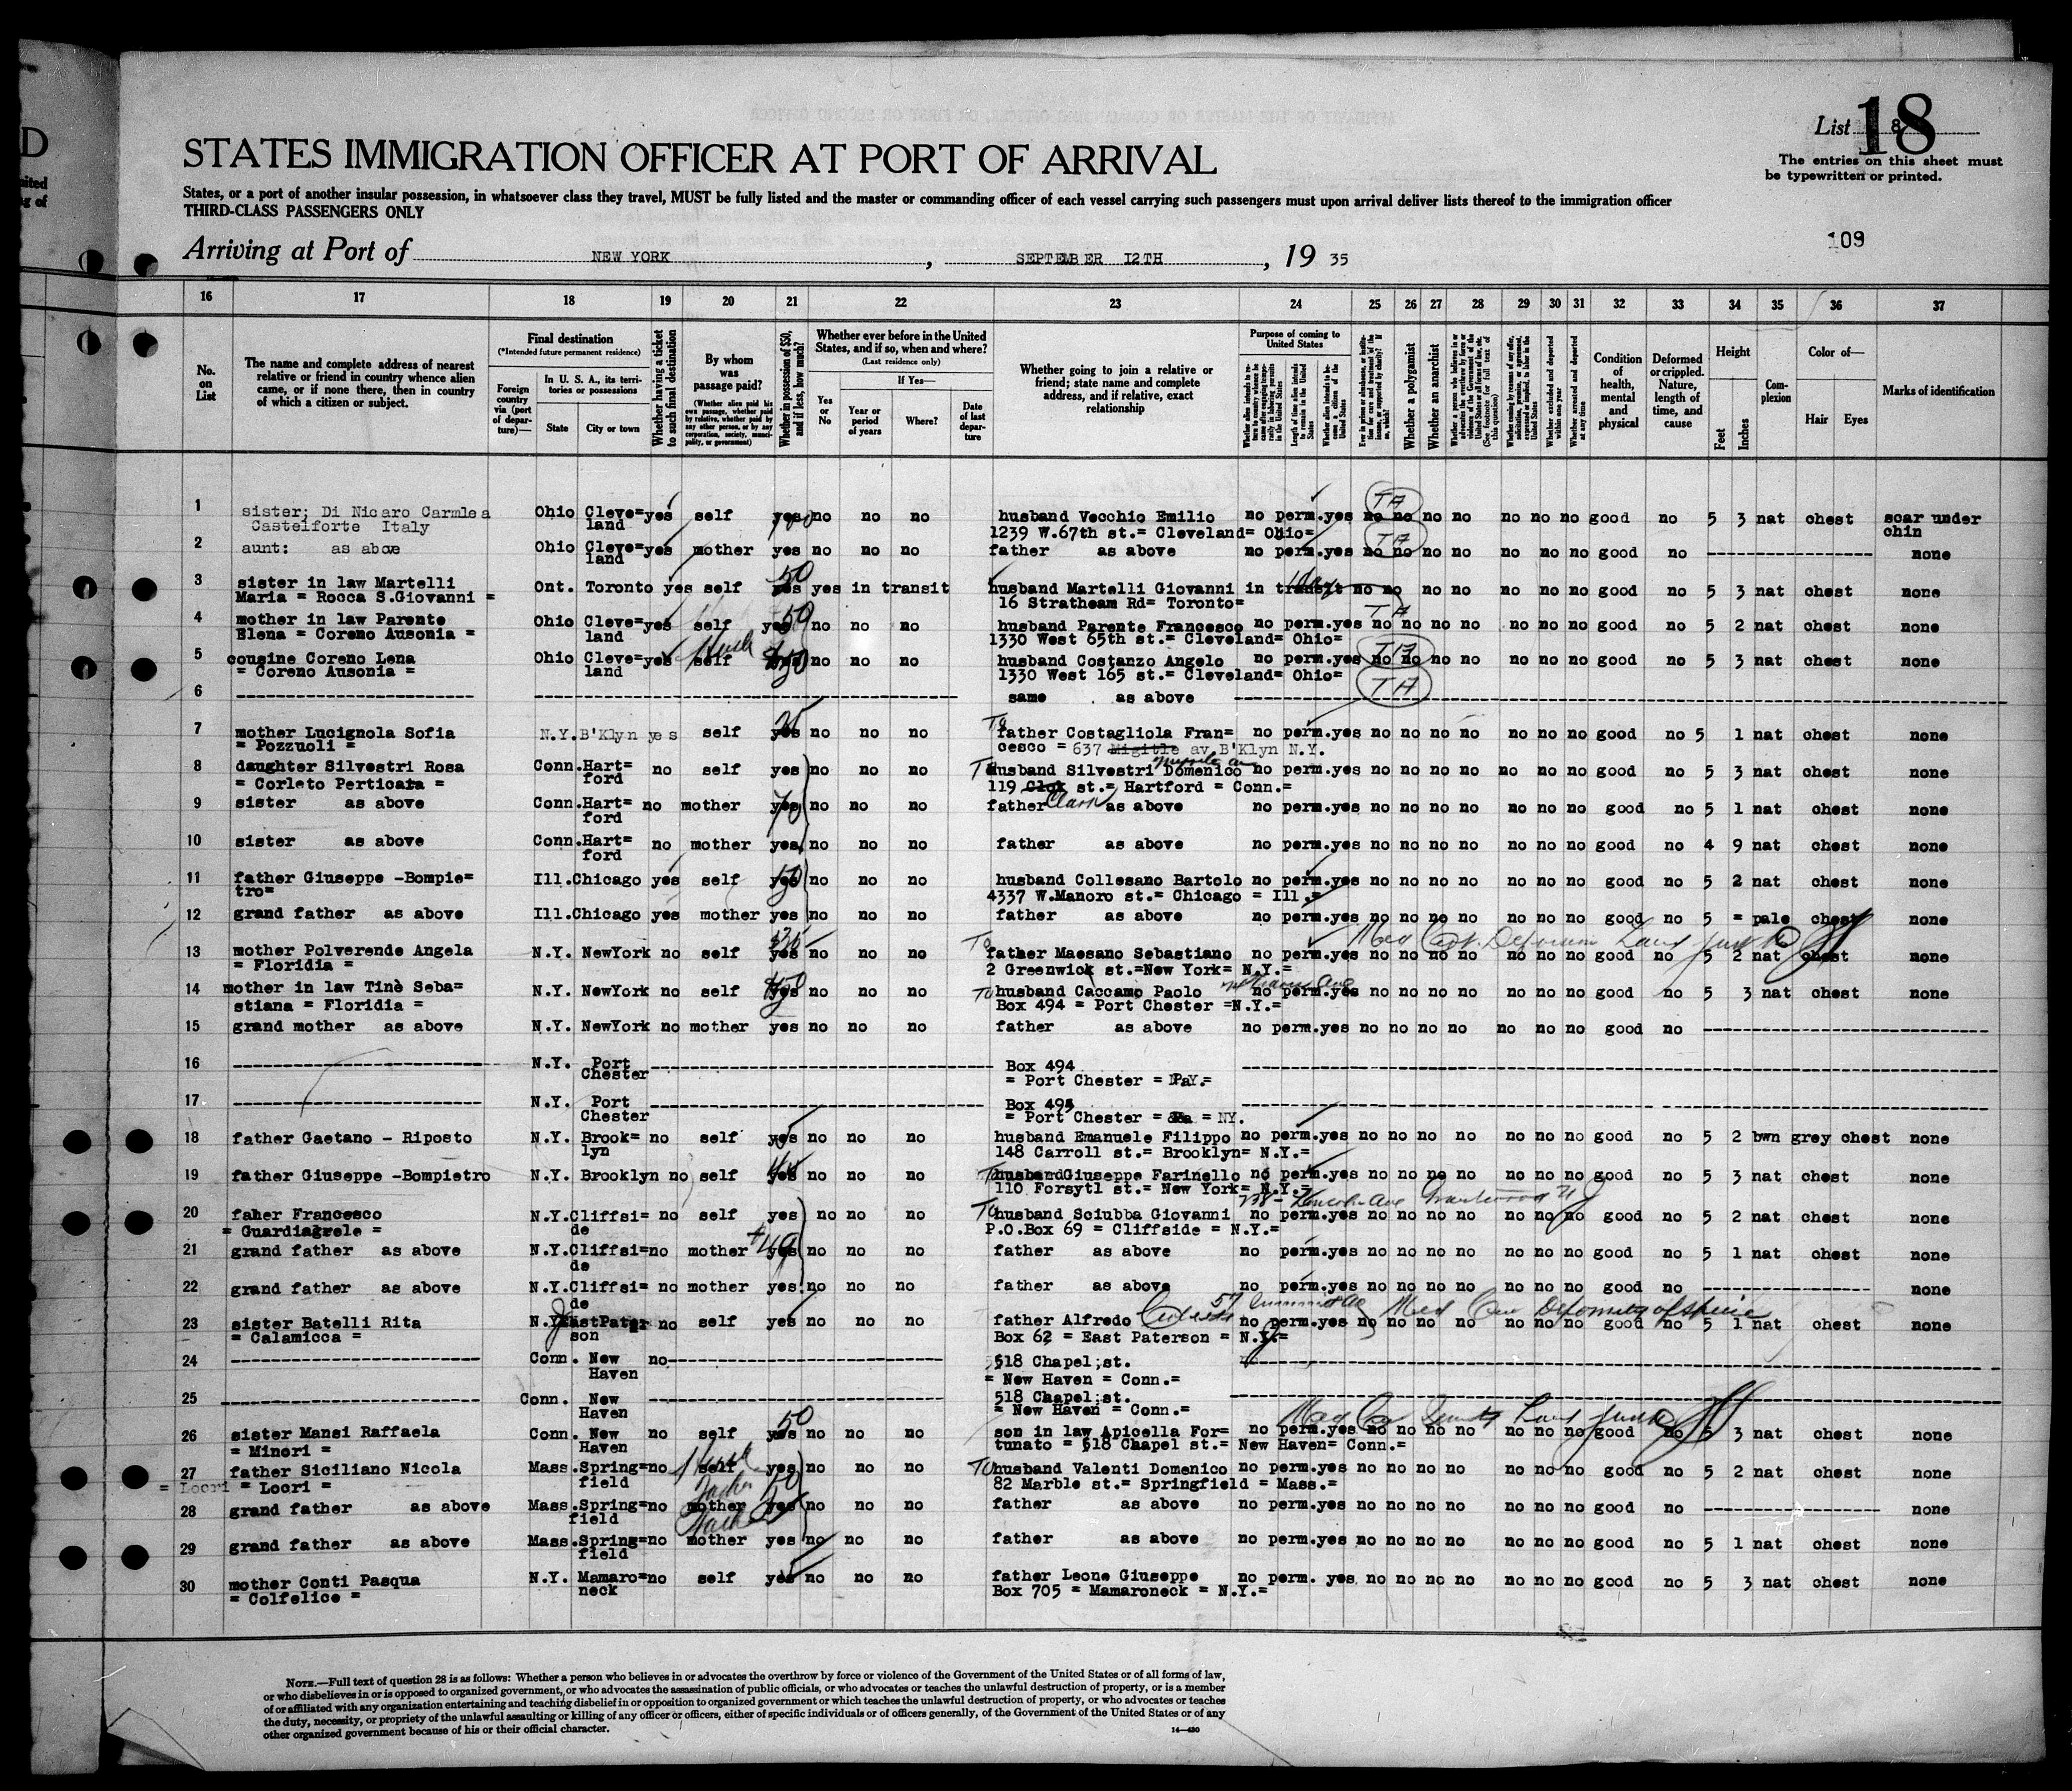 D
List 8 18
The entries on this sheet must
be typewritten or printed.
STATES IMMIGRATION OFFICER AT PORT OF ARRIVAL
States, or a port of another insular possession, in whatsoever class they travel, MUST be fully listed and the master or commanding officer of each vessel carrying such passengers must upon arrival deliver lists thereof to the immigration officer
THIRD-CLASS PASSENGERS ONLY
109
Arriving at Port of NEW YORK, SEPTEMBER 12TH, 19 35
16 17 18 19 20 21 22 23 24 25 26 27 28 29 30 31 32 33 34 35 36 37
No. on List
The name and complete address of nearest relative or friend in country whence alien came, or if none there, then in country of which a citizen or subject.
Final destination
(*Intended future permanent residence)
Foreign country via (port of departure)—
In U. S. A., its territories or possessions
State City or town
Whether having a ticket to such final destination
By whom was passage paid?
(Whether alien paid his own passage, whether paid by relative, whether paid by any other person, or by any corporation, society, municipality, or government)
Whether in possession of $50, and if less, how much?
Whether ever before in the United States, and if so, when and where?
(Last residence only)
Yes or No
If Yes—
Year or period of years
Where?
Date of last departure
Whether going to join a relative or friend; state name and complete address, and if relative, exact relationship
Purpose of coming to United States
Whether a polygamist
Whether an anarchist
Whether excluded and deported within one year
Whether arrested and deported at any time
Condition of health, mental and physical
Deformed or crippled. Nature, length of time, and cause
Height
Feet Inches
Complexion
Color of—
Hair Eyes
Marks of identification
1 sister; Di Nicaro Carmlea Ohio Cleve= yes self yes no no no husband Vecchio Emilio no perm. yes no no no no no no no good no 5 3 nat chest scar under
Castelforte Italy land 1239 W.67th st.= Cleveland= Ohio= TA chin
2 aunt: as above Ohio Cleve= yes mother yes no no no father as above no perm. yes no no no no no no no good no ---------- none
land TA
3 sister in law Martelli Ont. Toronto yes self yes 50 yes in transit husband Martelli Giovanni in transit no no no no no no no good no 5 3 nat chest none
Maria = Rocca S.Giovanni = 16 Stratheam Rd= Toronto=
4 mother in law Parente Ohio Cleve= yes self yes 50 no no no husband Parente Francesco no perm. yes no no no no no no no good no 5 2 nat chest none
Elena = Coreno Ausonia = land 1330 West 65th st.= Cleveland= Ohio= TA
5 cousine Coreno Lena Ohio Cleve= yes self yes 50 no no no husband Costanzo Angelo no perm. yes no no no no no no no good no 5 3 nat chest none
= Coreno Ausonia = land 1330 West 165 st.= Cleveland= Ohio= TA
6 ---------- ---------- same as above ----------
7 mother Lucignola Sofia N.Y. B'Klyn yes self yes 25 no no no To father Costagliola Fran= no perm. yes no no no no no no no good no 5 1 nat chest none
= Pozzuoli = cesco = 637 Migitle av B'Klyn N.Y.
8 daughter Silvestri Rosa Conn. Hart= no self yes no no no husband Silvestri Domenico no perm. yes no no no no no no no good no 5 3 nat chest none
= Corleto Perticara = ford 119 Clok st.= Hartford = Conn.=
9 sister as above Conn. Hart= no mother yes 70 no no no father Clark as above no perm. yes no no no no no no no good no 5 1 nat chest none
ford
10 sister as above Conn. Hart= no mother yes no no no father as above no perm. yes no no no no no no no good no 4 9 nat chest none
ford
11 father Giuseppe -Bompie= Ill. Chicago yes self yes 50 no no no husband Collesano Bartolo no perm. yes no no no no no no no good no 5 2 nat chest none
tro= 4337 W.Manoro st.= Chicago = Ill.=
12 grand father as above Ill. Chicago yes mother yes no no no father as above no perm. yes no no no no no no no good no 5 = pale chest none
13 mother Polverende Angela N.Y. NewYork no self yes no no no To father Maesano Sebastiano no perm. yes no no no no no no no good no 5 2 nat chest none
= Floridia = 2 Greenwick st.=New York= N.Y.=
14 mother in law Tinè Seba= N.Y. NewYork no self yes no no no To husband Caccamo Paolo no perm. yes no no no no no no no good no 5 3 nat chest none
stiana = Floridia = Box 494 = Port Chester =N.Y.=
15 grand mother as above N.Y. NewYork no mother yes no no no father as above no perm. yes no no no no no no no good no ----------
16 ---------- N.Y. Port ---------- Box 494 ----------
Chester = Port Chester = N.Y.=
17 ---------- N.Y. Port ---------- Box 495 ----------
Chester = Port Chester = NY.
18 father Gaetano - Riposto N.Y. Brook= no self yes no no no husband Emanuele Filippo no perm. yes no no no no no no no good no 5 2 bwn grey chest none
lyn 148 Carroll st.= Brooklyn= N.Y.=
19 father Giuseppe -Bompietro N.Y. Brooklyn no self yes no no no To husband Giuseppe Farinello no perm. yes no no no no no no no good no 5 3 nat chest none
110 Forsytl st.= New York= N.Y.=
20 faher Francesco N.Y. Cliffsi= no self yes no no no To husband Sciubba Giovanni no perm. yes no no no no no no no good no 5 2 nat chest none
= Guardiagrele = de P.O.Box 69 = Cliffside = N.Y.=
21 grand father as above N.Y. Cliffsi= no mother yes 49 no no no father as above no perm. yes no no no no no no no good no 5 1 nat chest none
de
22 grand father as above N.Y. Cliffsi= no mother yes no no no father as above no perm. yes no no no no no no no good no ---------- none
de
23 sister Batelli Rita N.Y. East Pater no self yes no no no father Alfredo no perm. yes no no no no no no no good no 5 1 nat chest none
= Calamicca = son Box 62 = East Paterson = N.Y.= Deformity of spine
24 ---------- Conn. New no ---------- 518 Chapel;st. ----------
Haven = New Haven = Conn.=
25 ---------- Conn. New ---------- 518 Chapel;st. ----------
Haven = New Haven = Conn.=
26 sister Mansi Raffaela Conn. New no self yes 50 no no no son in law Apicella For= no perm. yes no no no no no no no good no 5 3 nat chest none
= Minori = Haven tunato = 518 Chapel st.= New Haven= Conn.=
27 father Siciliano Nicola Mass. Spring= no self yes no no no To husband Valenti Domenico no perm. yes no no no no no no no good no 5 2 nat chest none
= Locri = Locri = field 82 Marble st.= Springfield = Mass.=
28 grand father as above Mass. Spring= no mother yes no no no father as above no perm. yes no no no no no no no good no ---------- none
field
29 grand father as above Mass. Spring= no mother yes no no no father as above no perm. yes no no no no no no no good no 5 1 nat chest none
field
30 mother Conti Pasqua N.Y. Mamaro= no self yes no no no father Leone Giuseppe no perm. yes no no no no no no no good no 5 3 nat chest none
= Colfelice = neck Box 705 = Mamaroneck = N.Y.=
NOTE.—Full text of question 28 is as follows: Whether a person who believes in or advocates the overthrow by force or violence of the Government of the United States or of all forms of law,
or who disbelieves in or is opposed to organized government, or who advocates the assassination of public officials, or who advocates or teaches the unlawful destruction of property, or is a member
of or affiliated with any organization entertaining and teaching disbelief in or opposition to organized government or which teaches the unlawful destruction of property, or who advocates or teaches
the duty, necessity, or propriety of the unlawful assaulting or killing of any officer or officers, either of specific individuals or of officers generally, of the Government of the United States or of any
other organized government because of his or their official character.
14—430